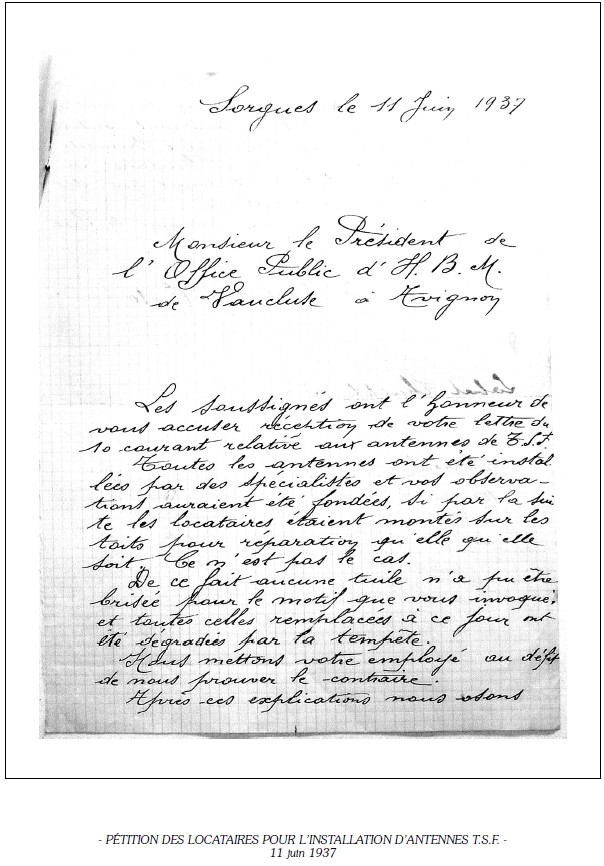 Sorgues le 11 Juin 1937
Monsieur le Président de
l'Office Public d'H. B. M.
de Vaucluse à Avignon
Les soussignés ont l'honneur de
vous accuser réception de votre lettre du
10 courant relative aux antennes de T.S.F.
Toutes les antennes ont été instal
lées par des spécialistes et vos observa-
tions auraient été fondées, si par la sui
te les locataires étaient montés sur les
toits pour réparation qu'elle qu'elle
soit. Ce n'est pas le cas.
De ce fait aucune tuile n'a pu être
brisée pour le motif que vous invoquez
et toutes celles remplacées à ce jour ont
été dégradées par la tempête.
Nous mettons votre employé au défi
de nous prouver le contraire.
Après ces explications nous osons
- PÉTITION DES LOCATAIRES POUR L'INSTALLATION D'ANTENNES T.S.F. -
11 juin 1937